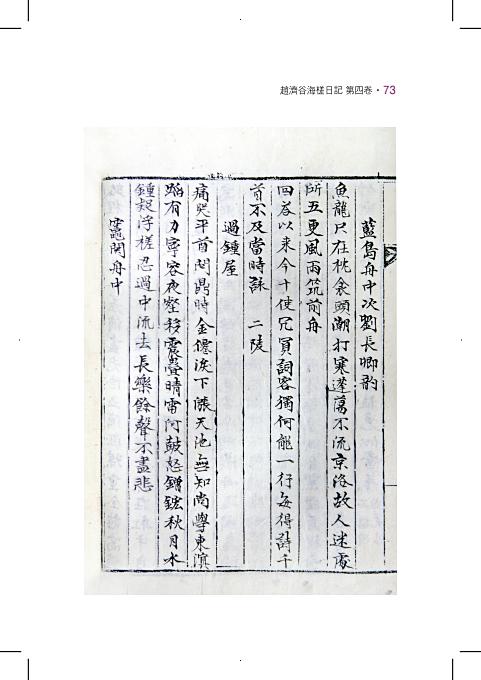 趙濟谷海槎日記 第四卷 • 73
藍島舟中次劉長卿韵
魚龍只在枕衾頭潮打寒蓬蕩不流京洛故人迷處
所五更風雨筑前舟
回 以來今十使冗員詞客獨何能一行每得詩千
首不及當時 二陵
過鍾屋
痛哭平首問 時金僊淚下漲天池無知尚學東濱
蹈有力寧容夜壑移 聲晴雷河鼓怒鏗鋐秋月水
鍾 浮槎忍過中流去長樂餘聲不盡悲
竈関舟中